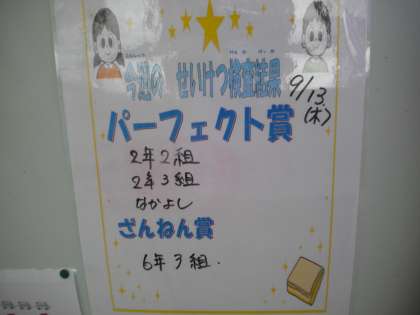 今週の せいけつ検査結果
9/13(木)
パーフェクト賞
2年2組
2年3組
なかよし
ざんねん賞
6年3組.